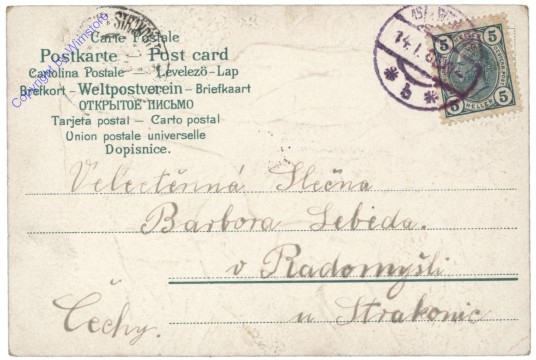 Carte Postale
Postkarte - Post card
Cartolina Postale - Levelezö-Lap
Brefkort - Weltpostverein - Briefkaart
ОТКРЫТОЕ ПИСЬМО
Tarjeta postal - Carto postal
Union postale universelle
Dopisnice.
Copyright by Wimstore
5 5
5 5
HELLER
14.I.
* b *
Velectěnná Slečna
Barbora Lebeda.
v Radomyšli
u Strakonic
Čechy.